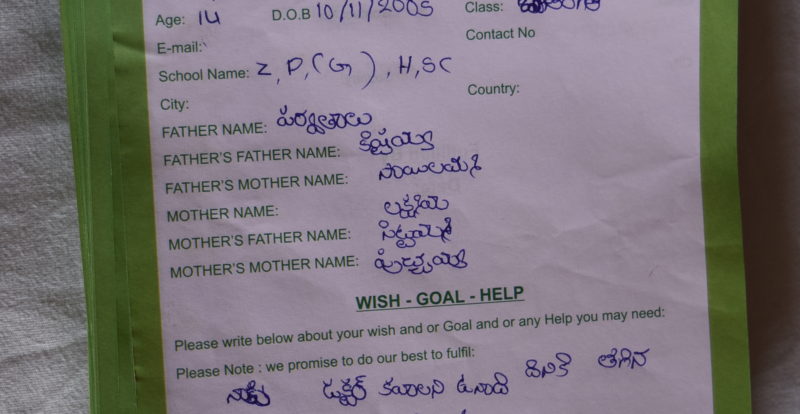 Age: 14 D.O.B 10/11/2005 Class:
E-mail: Contact No
School Name: Z, P, (G), H, SC
City: Country:
FATHER NAME: పర్వతాలు
FATHER'S FATHER NAME: కిష్టయ్య
FATHER'S MOTHER NAME: సాయిలమ్మ
MOTHER NAME: లక్ష్మి
MOTHER'S FATHER NAME:
MOTHER'S MOTHER NAME:
WISH - GOAL - HELP
Please write below about your wish and or Goal and or any Help you may need:
Please Note : we promise to do our best to fulfil:
నాకు డాక్టర్ కవాలని ఉనాది దినికి తగిన